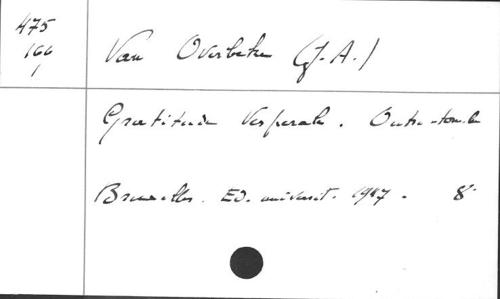 475
166
1
Van Overbeke (J.-A.)
Gratitude Vespérale. Outre-tombe
Bruxelles. Ed. universit. 1947. 8°